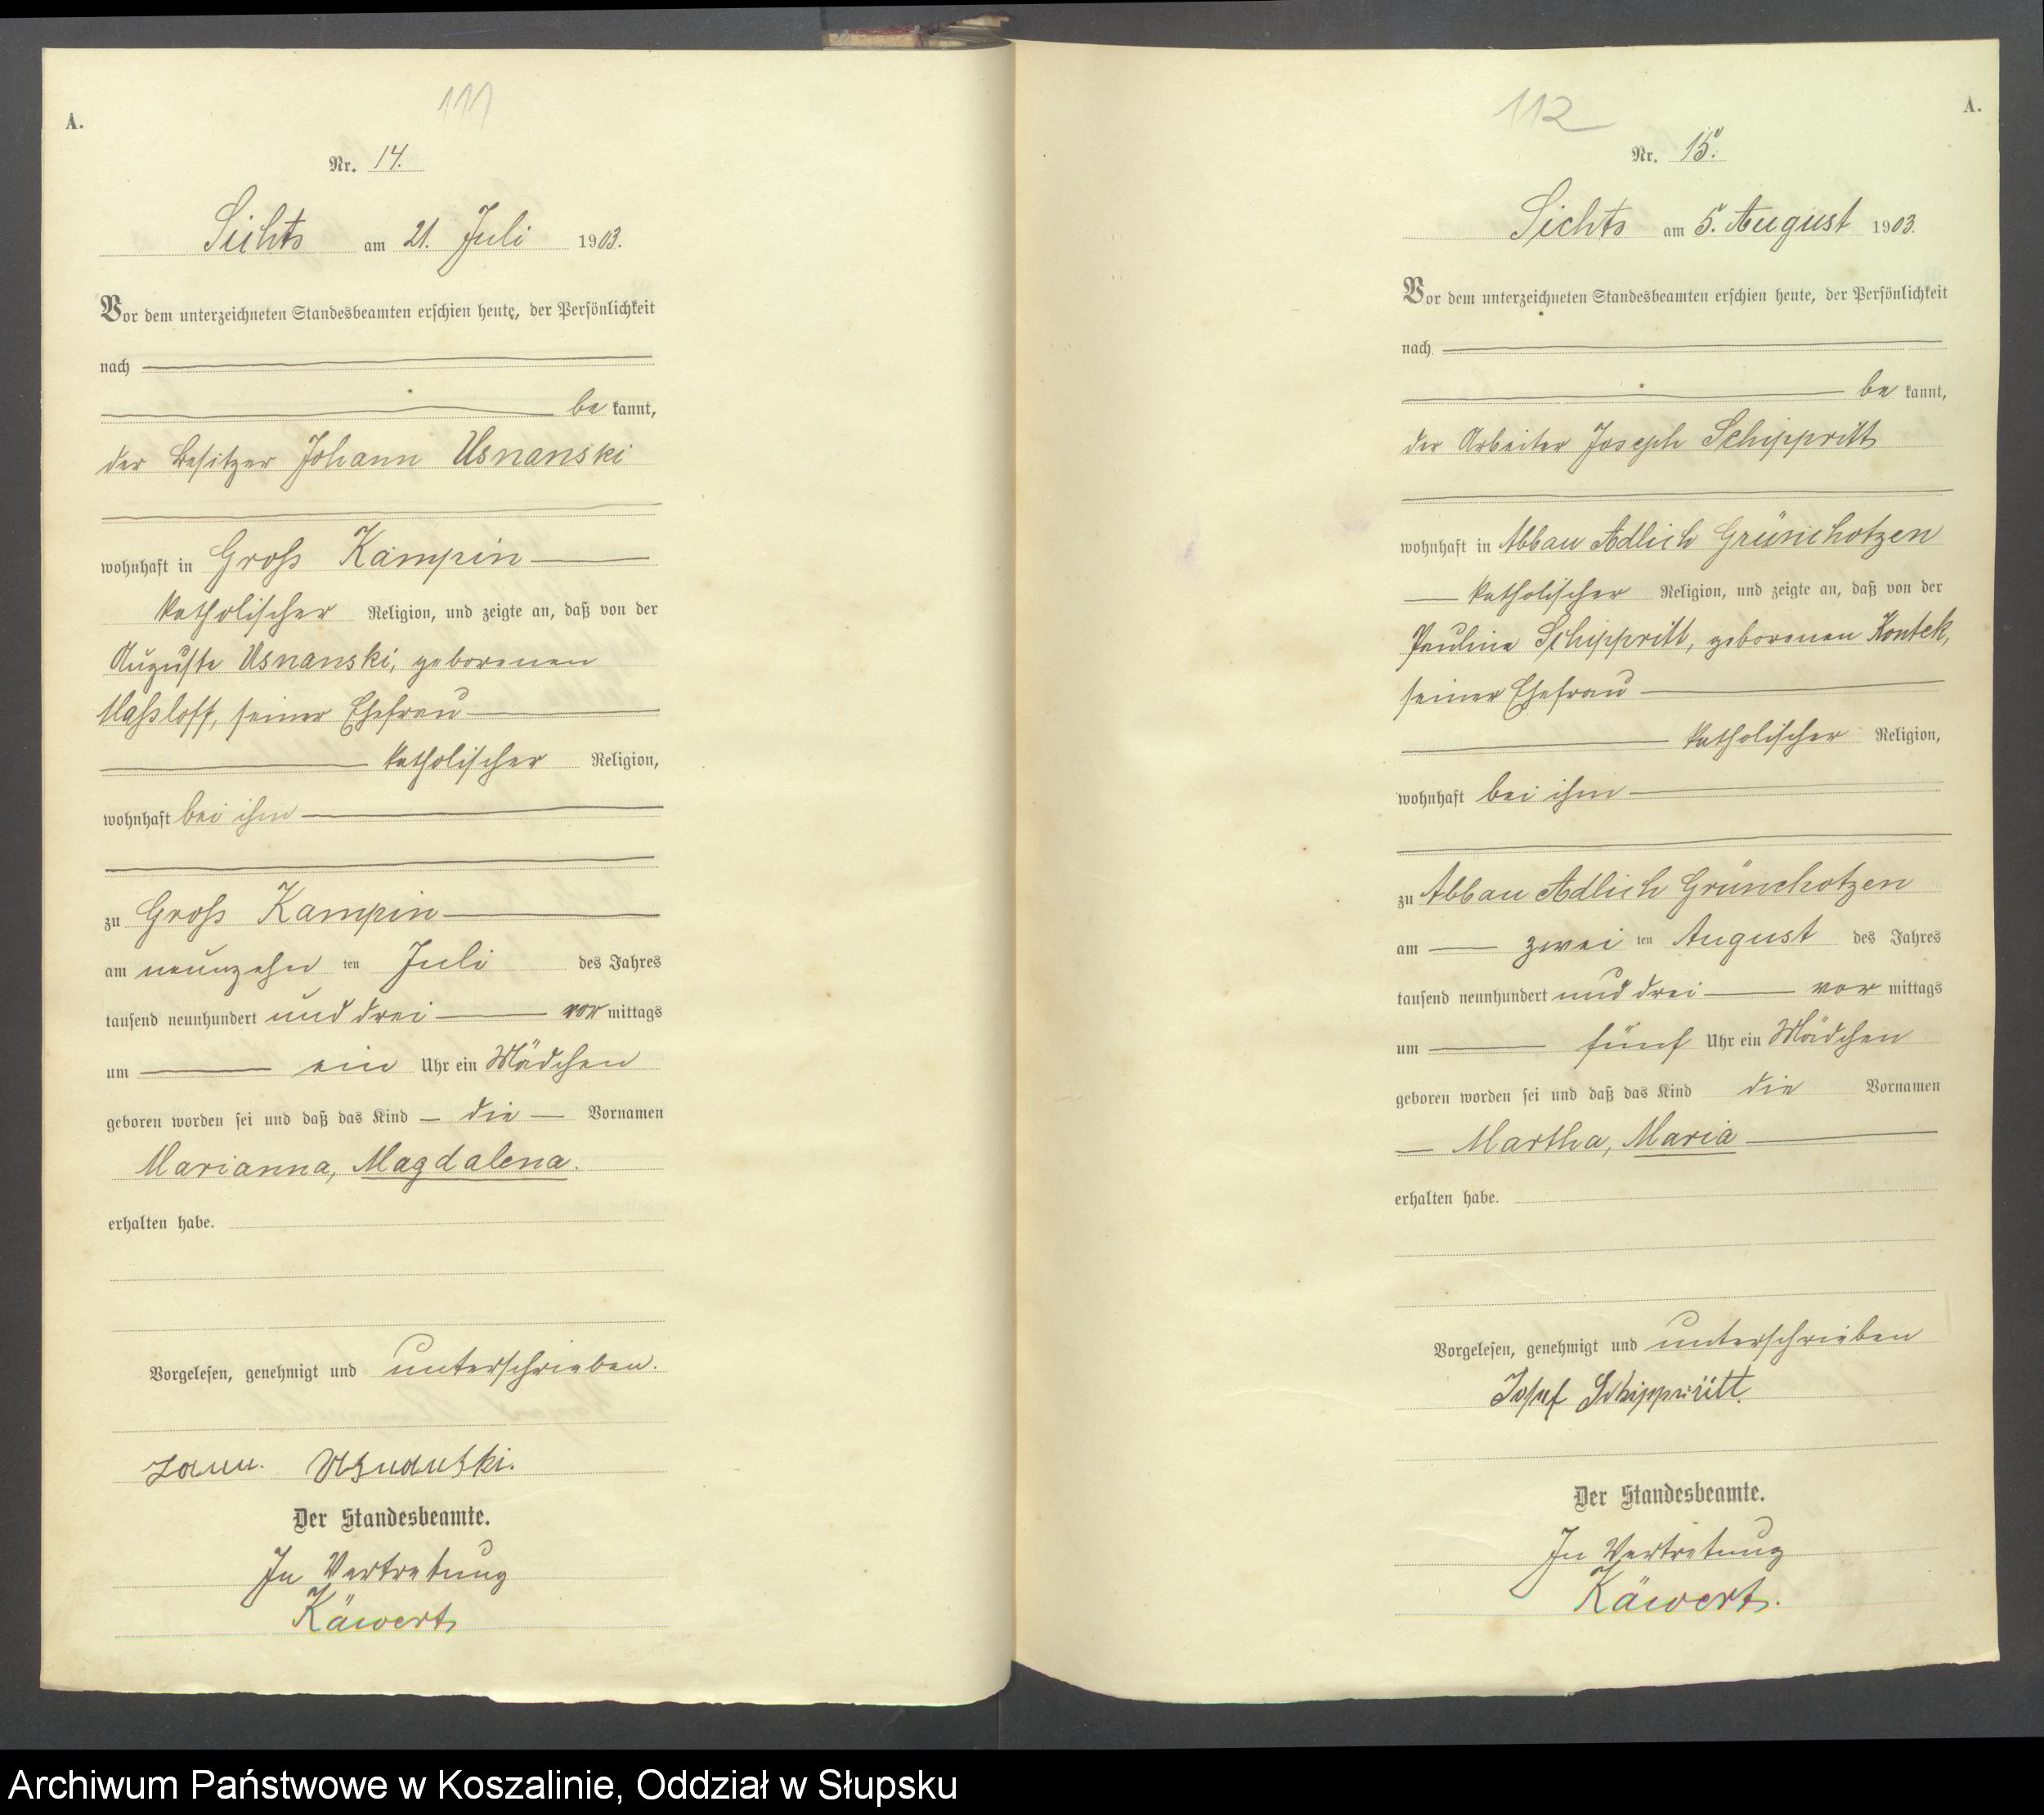 111
A.
Nr. 14.
Sichts am 21. Juli 1903.
Vor dem unterzeichneten Standesbeamten erschien heute, der Persönlichkeit
nach
be kannt,
der Besitzer Johann Usnanski
wohnhaft in Groß Kampin
katholischer Religion, und zeigte an, daß von der
Auguste Usnanski, geborenen
Maßloff, seiner Ehefrau
katholischer Religion,
wohnhaft bei ihm
zu Groß Kampin
am neunzehn ten Juli des Jahres
tausend neunhundert und drei vor mittags
um ein Uhr ein Mädchen
geboren worden sei und daß das Kind die Vornamen
Marianna, Magdalena.
erhalten habe.
Vorgelesen, genehmigt und unterschrieben.
Usnanski.
Der Standesbeamte.
In Vertretung
Käwert
112
A.
Nr. 15.
Sichts am 5. August 1903.
Vor dem unterzeichneten Standesbeamten erschien heute, der Persönlichkeit
nach
be kannt,
der Arbeiter Joseph Schippritt
wohnhaft in Abbau Adlich Grünchotzen
katholischer Religion, und zeigte an, daß von der
Pauline Schippritt, geborenen Kontek,
seiner Ehefrau
katholischer Religion,
wohnhaft bei ihm
zu Abbau Adlich Grünchotzen
am zwei ten August des Jahres
tausend neunhundert und drei vor mittags
um fünf Uhr ein Mädchen
geboren worden sei und daß das Kind die Vornamen
Martha, Maria
erhalten habe.
Vorgelesen, genehmigt und unterschrieben
Josef Schippritt.
Der Standesbeamte.
In Vertretung
Käwert.
Archiwum Państwowe w Koszalinie, Oddział w Słupsku